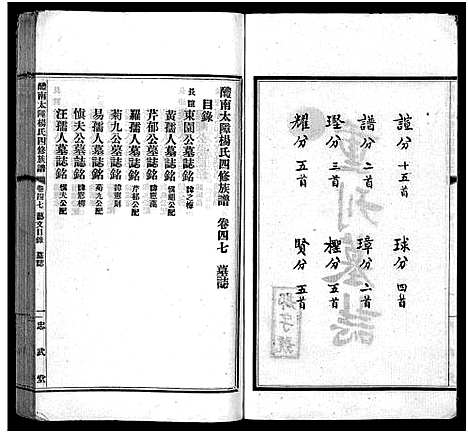 誼分 十五首
譜分 二首
璒分 五首
耀分 五首
球分 四首
璋分 二首
檉分 五首
賢分 五首
重刊墓誌
醴南太障楊氏四修族譜 卷四七 墓誌
目錄
長誼
東園公墓誌銘
黃孺人墓誌銘
芹郁公墓誌銘
羅孺人墓誌銘 芹郁公配
菊九公墓誌銘
易孺人墓誌銘 菊九公配
偵夫公墓誌銘
汪孺人墓誌銘 偵夫公配
醴南太障楊氏四修族譜 卷四七 藝文目錄 墓誌
一 忠武堂